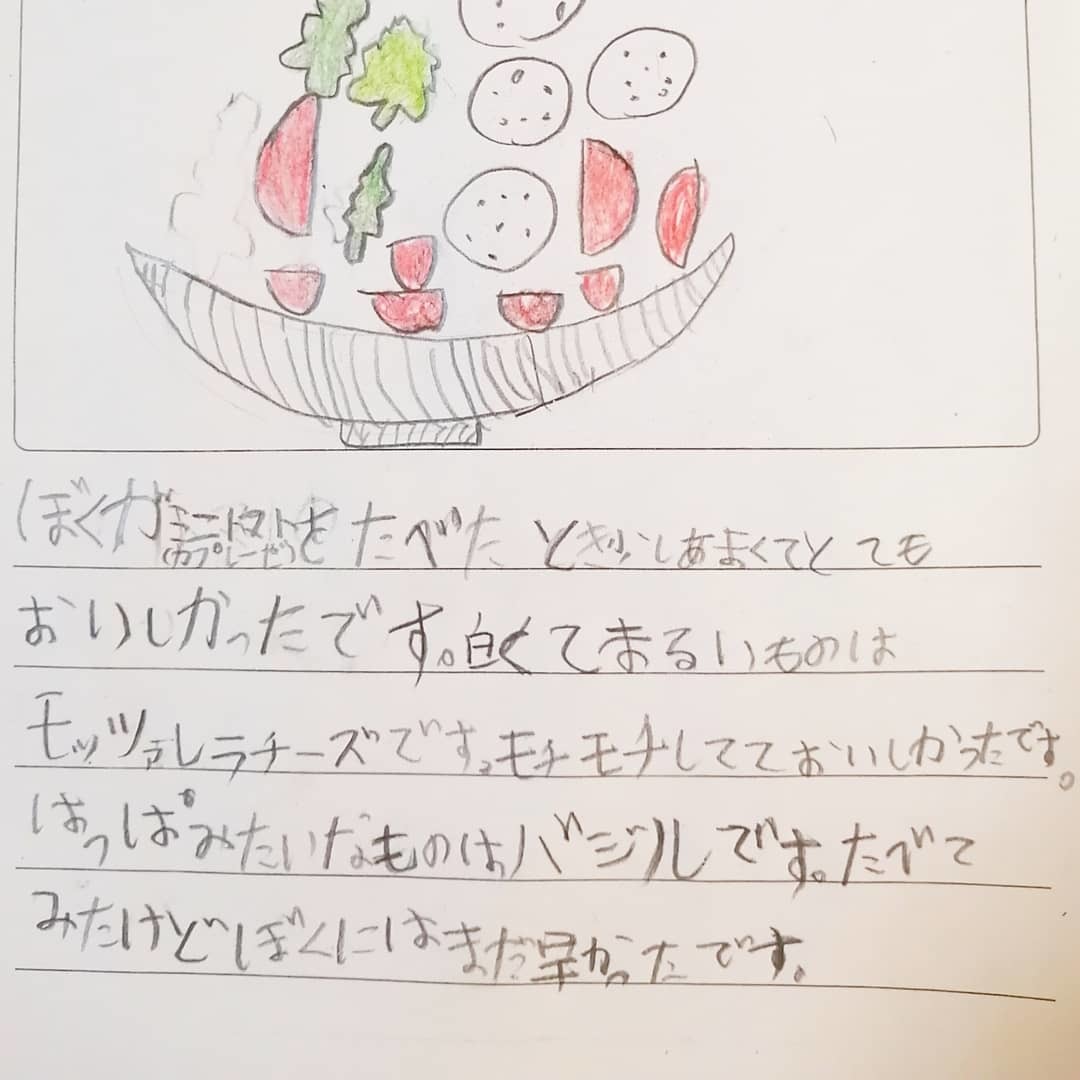 ぼくがミニトマトを たべた とき少しあまくてとても
(カプレーゼ)
おいしかったです。白くてまるいものは
モッツァレラチーズです。モチモチしてておいしかったです。
はっぱみたいなものはバジルです。たべて
みたけどぼくにはまだ早かったです。